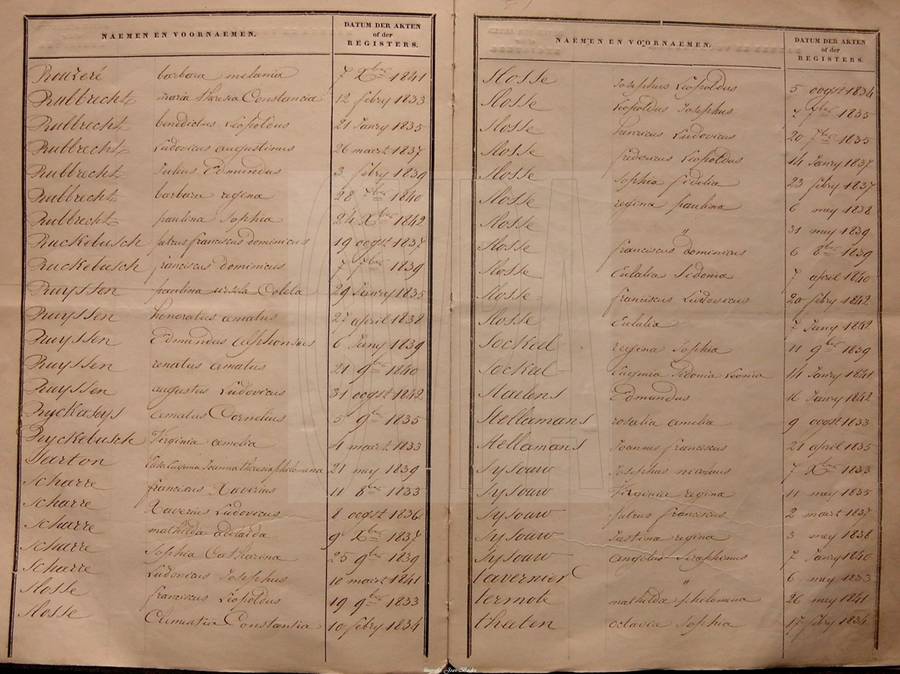 NAEMEN EN VOORNAEMEN.
DATUM DER AKTEN
of der
REGISTERS.
Rouzeré barbara melania 7 Xbre 1841
Rubbrecht maria theresia Constancia 12 febry 1833
Rubbrecht benedictus Leopoldus 21 Janry 1835
Rubbrecht Ludovicus augustinus 26 maert 1837
Rubbrecht Julius Edmundus 3 febry 1839
Rubbrecht barbara regina 28 7bre 1840
Rubbrecht paulina Sophia 24 Xbre 1842
Ruckebusch petrus franciscus dominicus 19 oogst 1837
Ruckebusch franciscus dominicus 7 7bre 1839
Ruyssen paulina Coleta 29 Janry 1835
Ruyssen honoratus amatus 27 april 1838
Ruyssen Edmundus alphonsus 6 Juny 1839
Ruyssen renatus amatus 21 9bre 1840
Ruyssen augustus Ludovicus 31 oogst 1842
Ryckaseys amatus Cornelius 5 9bre 1835
Ryckebusch Virginia amelia 4 maert 1833
Sarton Joanna theresia philomena 21 mey 1839
Scharre franciscus Xaverius 11 8bre 1833
Scharre Xaverius Ludovicus 8 oogst 1836
Scharre mathilda adelaïda 9 Xbre 1837
Scharre Sophia Catharina 25 9bre 1839
Scharre Ludovicus Josephus 10 maert 1841
Slosse franciscus Leopoldus 19 9bre 1833
Slosse Clementia Constantia 10 febry 1834
NAEMEN EN VOORNAEMEN.
DATUM DER AKTEN
of der
REGISTERS.
Slosse Josephus Leopoldus 5 oogst 1834
Slosse Leopoldus Josephus 2 1835
Slosse henricus Ludovicus 20 7bre 1835
Slosse fredericus Leopoldus 14 Janry 1837
Slosse Sophia fidelia 23 febry 1837
Slosse regina paulina 6 mey 1838
Slosse " 31 mey 1839
Slosse franciscus dominicus 6 8bre 1839
Slosse Eulalia Sidonia 7 april 1840
Slosse franciscus Ludovicus 20 febry 1842
Slosse Eulalia 7 Juny 1842
Sockeel regina Sophia 11 9bre 1839
Sockeel Eugenia Sidonia Leonia 14 Janry 1841
Staelens Edmundus 16 Janry 1842
Stellamans rosalia amelia 9 oogst 1833
Stellamans Joannes franciscus 21 april 1835
Sysouw Josephus 7 Xbre 1833
Sysouw Virginie regina 11 mey 1835
Sysouw petrus franciscus 2 maert 1837
Sysouw Justina regina 3 mey 1838
Sysouw angelus Seraphinus 7 Janry 1840
tavernier " 6 mey 1833
termote mathilda philomena 26 mey 1841
theeten octavia Sophia 17 febry 1834